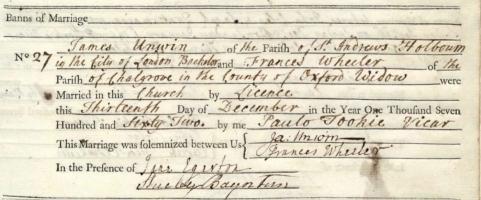 Banns of Marriage
No 27 James Unwin of the Parish of St. Andrews Holbourn
in the City of London Bachelor and Frances Wheeler of the
Parish of Chalgrove in the County of Oxford Widow were
Married in this Church by Licence
this Thirteenth Day of December in the Year One Thousand Seven
Hundred and Sixty Two. by me Vicar
This Marriage was solemnized between Us Ja: Unwin
Frances Wheeler
In the Presence of Egerton